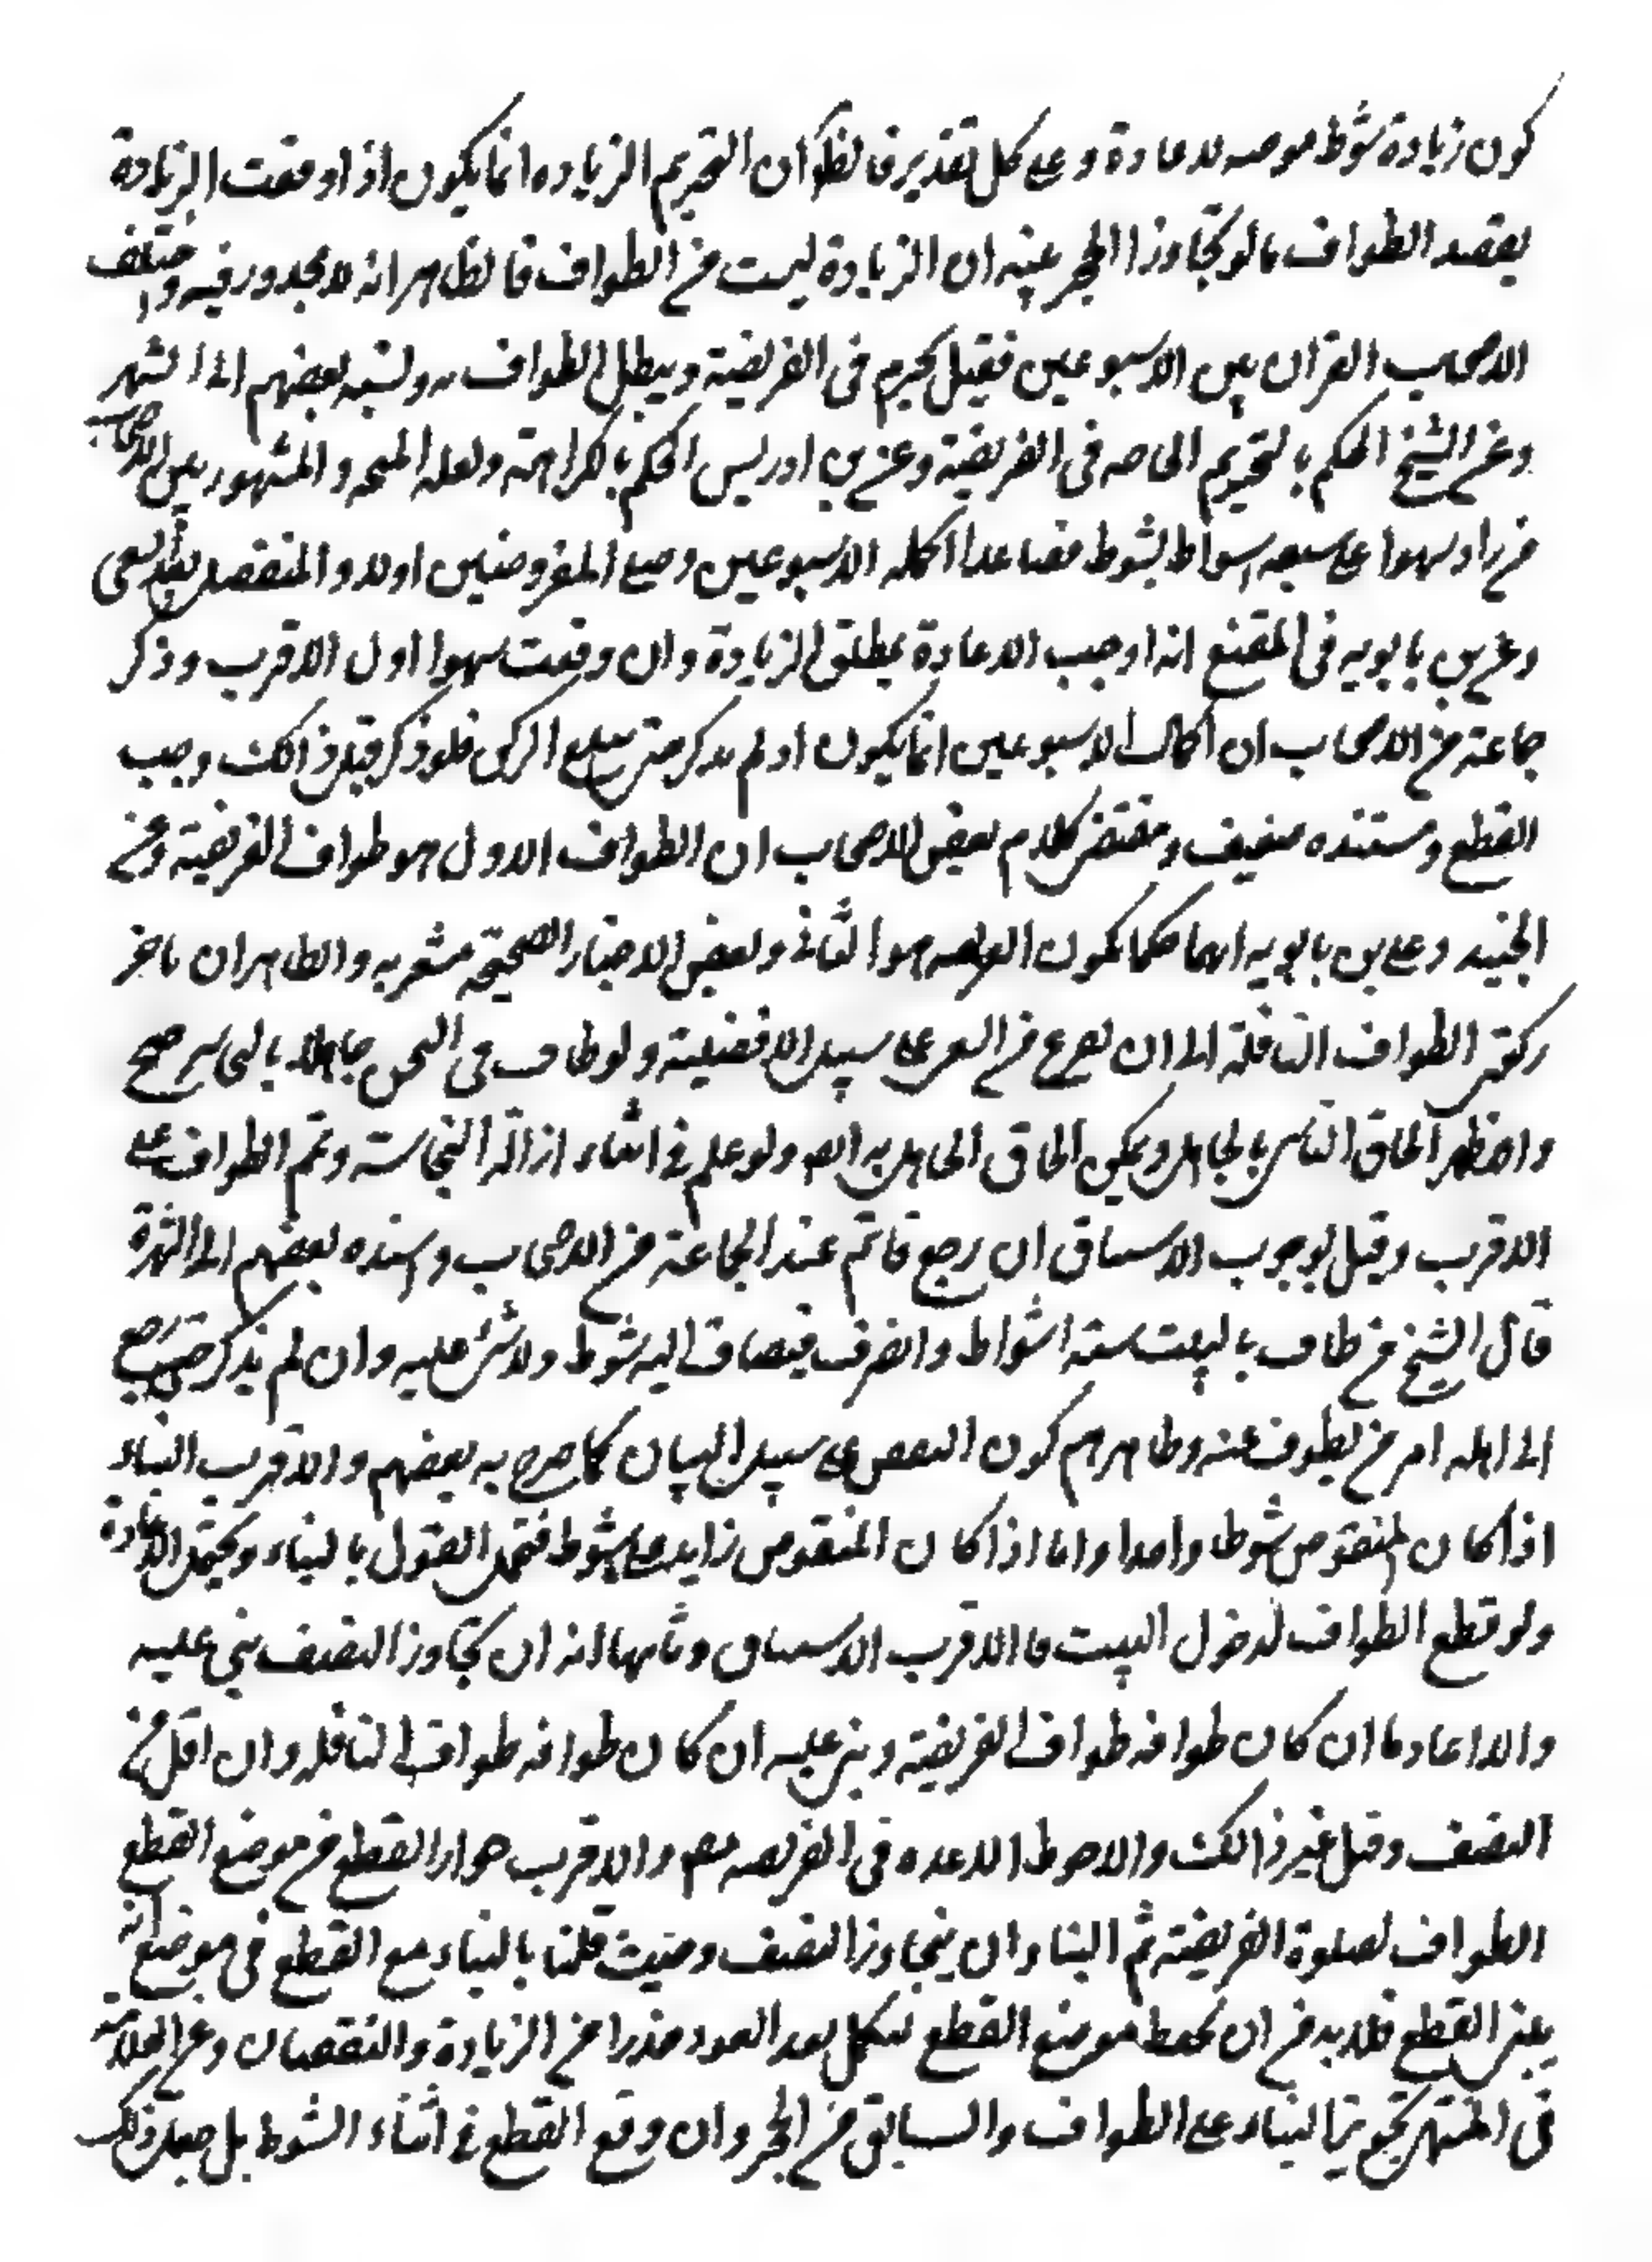 كون زيادة شوط موجبه للاعادة وعلى كل تقدير فالظ كون التحريم الزياده انما يكون اذا وقعت الزيادة
بقصد الطواف فالو تجاوز الحجر بنية ان الزيادة ليست من الطواف فالظاهر انه لا محذور فيه واختلف
الاصحاب القران بين الاسبوعين فقيل يحرم فى الفريضة ويبطل الطواف ونسبه بعضهم الى الشهر
وعن الشيخ الحكم بالتحريم خاصه فى الفريضة وعن بن ادريس الحكم بالكراهة ولعله المتجه والمشهور بين الاصحاب
من زاد سهوا على سبعه اشواط بشوط فصاعدا اكمله الاسبوعين وصلى المفروضتين اولا والمتفضل بعد السعى
وعن بن بابويه فى المقنع انه اوجب الاعادة بمطلق الزيادة وان وقعت سهوا اول الاقرب وذكر
جماعة من الاصحاب ان اكمال الاسبوعين انما يكون اذ لم يذكر حتى يبلغ الركن فلو ذكر قبل ذالك وجب
القطع ومستنده ضعيف ومقتضى كلام بعض الاصحاب ان الطواف الاول هو طواف الفريضة وعن
الجنيد وعلى بن بابويه انهما حكما بكون الفريضه هو الثانى وبعض الاخبار الصحيحة مشعر به والظاهر ان تاخر
ركعتى الطواف النافلة الى ان يفرغ من السعى على سبيل الافضلية ولو طاف فى النجس جاهلا بالنجاسة صح
والاظهر الحاق الناسى بالجاهل ويمكن الحاق الجاهل به ايضا ولو علم فى اثناء ازالة النجاسة وتم الطواف على
الاقرب وقيل بوجوب الاستيناف ان رجع فاتم عند الجماعة من الاصحاب واسنده بعضهم الى الشهرة
قال الشيخ من طاف بالبيت ستة اشواط وانصرف فيضاف اليه شوط ولا شئ عليه وان لم يذكر حتى رجع
الى اهله امر من يطوف عنه وظاهرهم كون النقص على سبيل النسيان كما صرح به بعضهم والاقرب البناء
اذا كان المنقوص شوطا واحدا واما اذا كان المنقوص زايد على شوط فيحتمل القول بالبناء ويحتمل الاعادة
ولو قطع الطواف لدخول البيت فالاقرب الاستيناف وثانيها انه ان تجاوز النصف بنى عليه
والا اعاد ما ان كان طوافه طواف الفريضة وبنى عليه ان كان طوافه طواف النافله وان اقل من
النصف وقيل غير ذالك والاحوط الاعده فى الفريضه والاقرب جواز القطع من موضع القطع
الطواف لصلوة الفريضة ثم البناء وان يتجاوز النصف وحيث قلنا بالبناء مع القطع فى موضع انه
يبنى القطع فلا بد من ان يحفظ موضع القطع ليكمل بعد العود حذرا من الزيادة والنقصان وعن العلامة
فى المنتهى تجويز البناء على الطواف والسابق من الحجر وان وقع القطع فى اثناء الشوط بل جعل ذلك